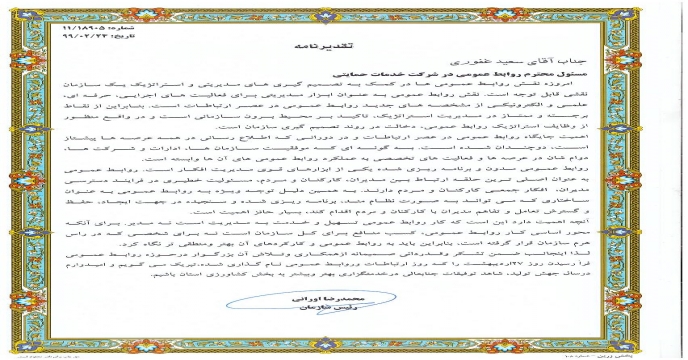 شماره: ۱۱/۱۸۹۰۵
تاریخ: ۹۹/۰۲/۲۳
تقدیرنامه
جناب آقای سعید غفوری
مسئول محترم روابط عمومی در شرکت خدمات حمایتی
امروزه نقش روابط عمومی ها در کمک به تصمیم گیری های مدیریتی و استراتژیک یک سازمان
نقشی قابل توجه است. نقش روابط عمومی به عنوان ابزار مدیریتی برای فعالیت های اجرایی، حرفه ای،
علمی و الکترونیکی از مشخصه های جدید روابط عمومی در عصر ارتباطات است. بنابراین از نقاط
برجسته و ممتاز در مدیریت استراتژیک، تاکید بر محیط برون سازمانی است و در واقع منظور
از وظایف استراتژیک روابط عمومی، دخالت در روند تصمیم گیری سازمان است.
اهمیت جایگاه روابط عمومی در عصر ارتباطات و در دورانی که اطلاع رسانی در همه عرصه ها پیشتاز
است، دوچندان شده است. به گونه ای که موفقیت سازمان ها، ادارات و شرکت ها،
دوام شان در عرصه ها و فعالیت های تخصصی به عملکرد روابط عمومی های آن ها وابسته است.
روابط عمومی مدون و برنامه ریزی شده یکی از ابزارهای قوی مدیریت افکار است. روابط عمومی
به عنوان اصلی ترین حلقه ارتباط بین مدیران، کارکنان و مردم، مسئولیت خطیری در فرایند دسترسی
مدیران، افکار جمعی کارکنان و مردم دارند. به همین دلیل توجه ویژه به روابط عمومی به عنوان
ساختاری که می تواند به صورت نظام مند، برنامه ریزی شده و سنجیده در جهت ایجاد، حفظ
و گسترش تعامل و تفاهم مدیران با کارکنان و مردم اقدام کند، بسیار حائز اهمیت است.
آنچه اهمیت دارد این است که کار روابط عمومی تسهیل و خدمت به مدیریت است نه مدیر. برای آنکه
محور اساسی کار روابط عمومی، کسب منافع برای کل سازمان است نه برای شخصی که در راس
هرم سازمان قرار گرفته است. بنابراین باید به روابط عمومی و کارکردهای آن بهتر ومنطقی تر نگاه کرد.
لذا اینجانب ضمن تشکر وقدردانی صمیمانه ازهمکاری وتلاش آن بزرگوار درحوزه روابط عمومی
فرا رسیدن روز ۲۷اردیبهشت را که روز ارتباطات وروابط عمومی نام گذاری شده،تبریک می گویم و امیدوارم
درسال جهش تولید، شاهد توفیقات جنابعالی درخدمتگزاری بهتر وبیشتر به بخش کشاورزی استان باشیم.
محمدرضا اورانی
رئیس سازمان